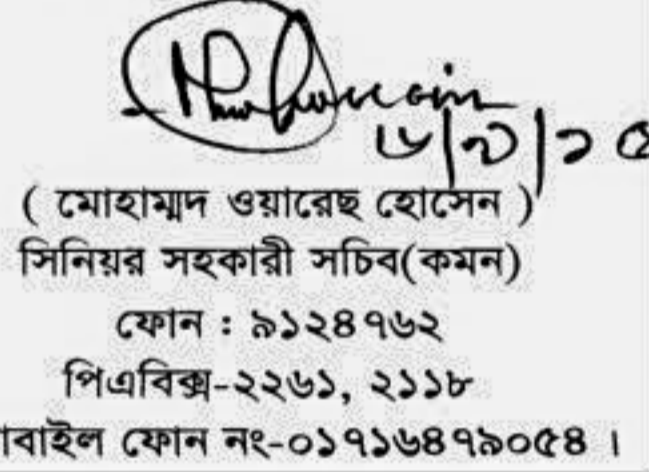 ৬|৯|১৫
( মোহাম্মদ ওয়ারেছ হোসেন )
সিনিয়র সহকারী সচিব(কমন)
ফোন : ৯১২৪৭৬২
পিএবিক্স-২২৬১, ২১১৮
াবাইল ফোন নং-০১৭১৬৪৭৯০৫৪ ।